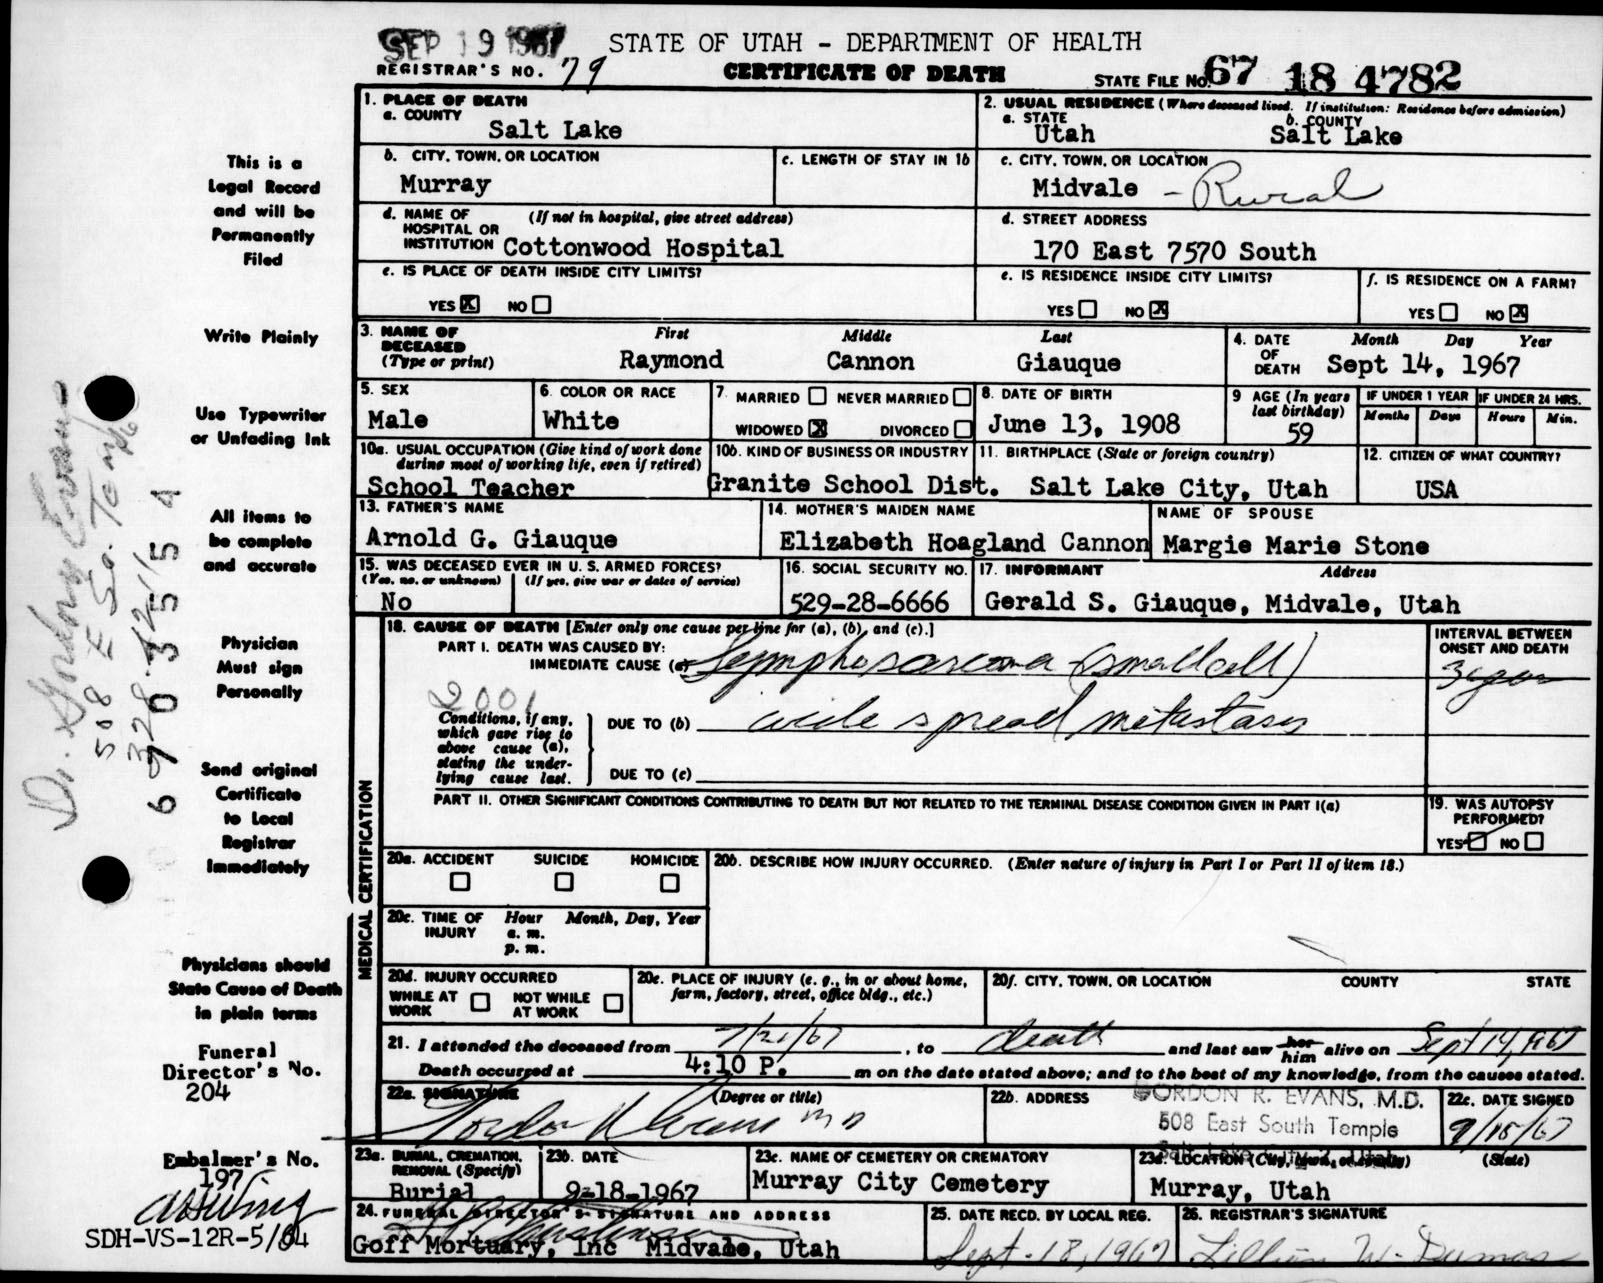 SEP 19 1967 STATE OF UTAH - DEPARTMENT OF HEALTH
REGISTRAR'S NO. 79 CERTIFICATE OF DEATH STATE FILE NO. 67 18 4782
1. PLACE OF DEATH
a. COUNTY
Salt Lake
2. USUAL RESIDENCE (Where deceased lived. If institution: Residence before admission)
a. STATE b. COUNTY
Utah Salt Lake
b. CITY, TOWN, OR LOCATION
Murray
c. LENGTH OF STAY IN 1b
c. CITY, TOWN, OR LOCATION
Midvale - Rural
d. NAME OF (If not in hospital, give street address)
HOSPITAL OR
INSTITUTION Cottonwood Hospital
d. STREET ADDRESS
170 East 7570 South
e. IS PLACE OF DEATH INSIDE CITY LIMITS?
YES X NO
e. IS RESIDENCE INSIDE CITY LIMITS?
YES NO X
f. IS RESIDENCE ON A FARM?
YES NO X
3. NAME OF First Middle Last
DECEASED
(Type or print) Raymond Cannon Giauque
4. DATE Month Day Year
OF
DEATH Sept 14, 1967
5. SEX
Male
6. COLOR OR RACE
White
7. MARRIED NEVER MARRIED
WIDOWED X DIVORCED
8. DATE OF BIRTH
June 13, 1908
9 AGE (In years
last birthday)
59
IF UNDER 1 YEAR IF UNDER 24 HRS.
Months Days Hours Min.
10a. USUAL OCCUPATION (Give kind of work done
during most of working life, even if retired)
School Teacher
10b. KIND OF BUSINESS OR INDUSTRY
Granite School Dist.
11. BIRTHPLACE (State or foreign country)
Salt Lake City, Utah
12. CITIZEN OF WHAT COUNTRY?
USA
13. FATHER'S NAME
Arnold G. Giauque
14. MOTHER'S MAIDEN NAME
Elizabeth Hoagland Cannon
NAME OF SPOUSE
Margie Marie Stone
15. WAS DECEASED EVER IN U. S. ARMED FORCES?
(Yes, no, or unknown) (If yes, give war or dates of service)
No
16. SOCIAL SECURITY NO.
529-28-6666
17. INFORMANT Address
Gerald S. Giauque, Midvale, Utah
MEDICAL CERTIFICATION
18. CAUSE OF DEATH [Enter only one cause per line for (a), (b), and (c).]
PART I. DEATH WAS CAUSED BY:
IMMEDIATE CAUSE (a) Lymphosarcoma (small cell)
2001
Conditions, if any,
which gave rise to
above cause (a),
stating the under-
lying cause last.
DUE TO (b) wide spread metastases
DUE TO (c)
INTERVAL BETWEEN
ONSET AND DEATH
PART II. OTHER SIGNIFICANT CONDITIONS CONTRIBUTING TO DEATH BUT NOT RELATED TO THE TERMINAL DISEASE CONDITION GIVEN IN PART I(a)
19. WAS AUTOPSY
PERFORMED?
YES NO
20a. ACCIDENT SUICIDE HOMICIDE
20b. DESCRIBE HOW INJURY OCCURRED. (Enter nature of injury in Part I or Part II of item 18.)
20c. TIME OF Hour Month, Day, Year
INJURY a. m.
p. m.
20d. INJURY OCCURRED
WHILE AT NOT WHILE
WORK AT WORK
20e. PLACE OF INJURY (e. g., in or about home,
farm, factory, street, office bldg., etc.)
20f. CITY, TOWN, OR LOCATION COUNTY STATE
21. I attended the deceased from 7/21/67, to death and last saw her him alive on Sept 14, 1967
Death occurred at 4:10 P. m on the date stated above; and to the best of my knowledge, from the causes stated.
22a. SIGNATURE (Degree or title)
Gordon R Evans M D
22b. ADDRESS GORDON R. EVANS, M.D.
508 East South Temple
22c. DATE SIGNED
9/15/67
23a. BURIAL, CREMATION,
REMOVAL (Specify)
Burial
23b. DATE
9-18-1967
23c. NAME OF CEMETERY OR CREMATORY
Murray City Cemetery
23d. LOCATION (City, town, or county) (State)
Murray, Utah
24. FUNERAL DIRECTOR'S SIGNATURE AND ADDRESS
Goff Mortuary, Inc Midvale, Utah
25. DATE RECD. BY LOCAL REG.
Sept. 18, 1967
26. REGISTRAR'S SIGNATURE
Lillian W. Dumas
This is a
Legal Record
and will be
Permanently
Filed
Write Plainly
Use Typewriter
or Unfading Ink
All items to
be complete
and accurate
Physician
Must sign
Personally
Send original
Certificate
to Local
Registrar
Immediately
Physicians should
State Cause of Death
in plain terms
Funeral
Director's No.
204
Embalmer's No.
197
SDH-VS-12R-5/64
Dr. Gordon Evans
508 E So. Temp
328-1211
6 7 0 3 5 5 4